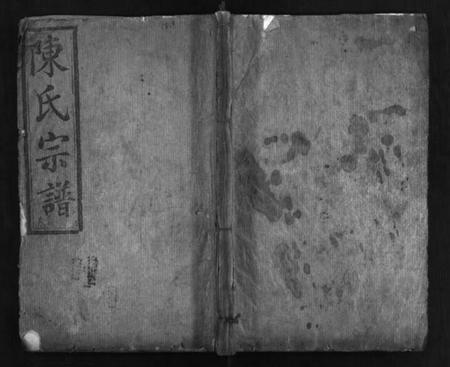 陳氏宗譜